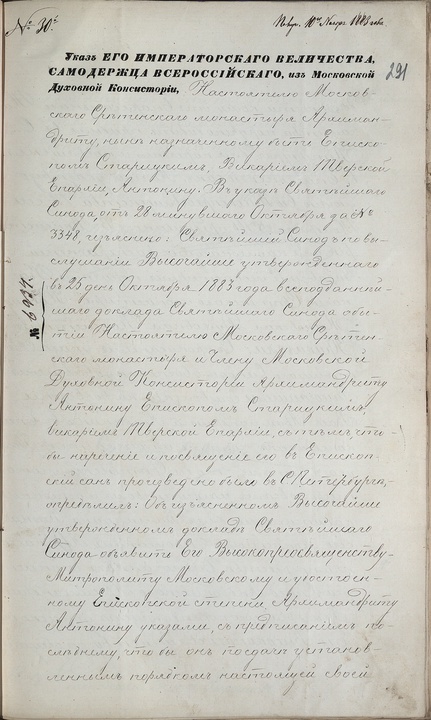 № 30й
10го Ноябр. 1883 года
291
Указъ ЕГО ИМПЕРАТОРСКАГО ВЕЛИЧЕСТВА,
САМОДЕРЖЦА ВСЕРОССІЙСКАГО, изъ Московской
Духовной Консисторіи, Настоятелю Москов-
скаго Срѣтенскаго монастыря Архиман-
дриту, нынѣ назначенному быть Еписко-
помъ Старицкимъ, Викаріемъ Тверской
Епархіи, Антонину. Въ указѣ Святѣйшаго
Синода, отъ 28 минувшаго Октября за №
3348, изъяснено: Святѣйшій Синодъ по вы-
слушаніи Высочайше утвержденнаго
въ 25 день Октября 1883 года всеподданнѣй-
шаго доклада Святѣйшаго Синода о бы-
тіи Настоятелю Московскаго Срѣтен-
скаго монастыря и Члену Московской
Духовной Консисторіи Архимандриту
Антонину Епископомъ Старицкимъ,
викаріемъ Тверской Епархіи, съ тѣмъ, что-
бы нареченіе и посвященіе его въ Епископ-
скій санъ произведено было въ С.Петербургѣ,
опредѣлилъ: Объ изъясненномъ Высочайше
утвержденномъ докладѣ Святѣйшаго
Синода объявить Его Высокопреосвященству
Митрополиту Московскому и удостоен-
ному Епископской степени, Архимандриту
Антонину указами, съ предписаніемъ по-
слѣднему, что бы онъ по сдачѣ установ-
леннымъ порядкомъ настоящей своей
№ 6937.